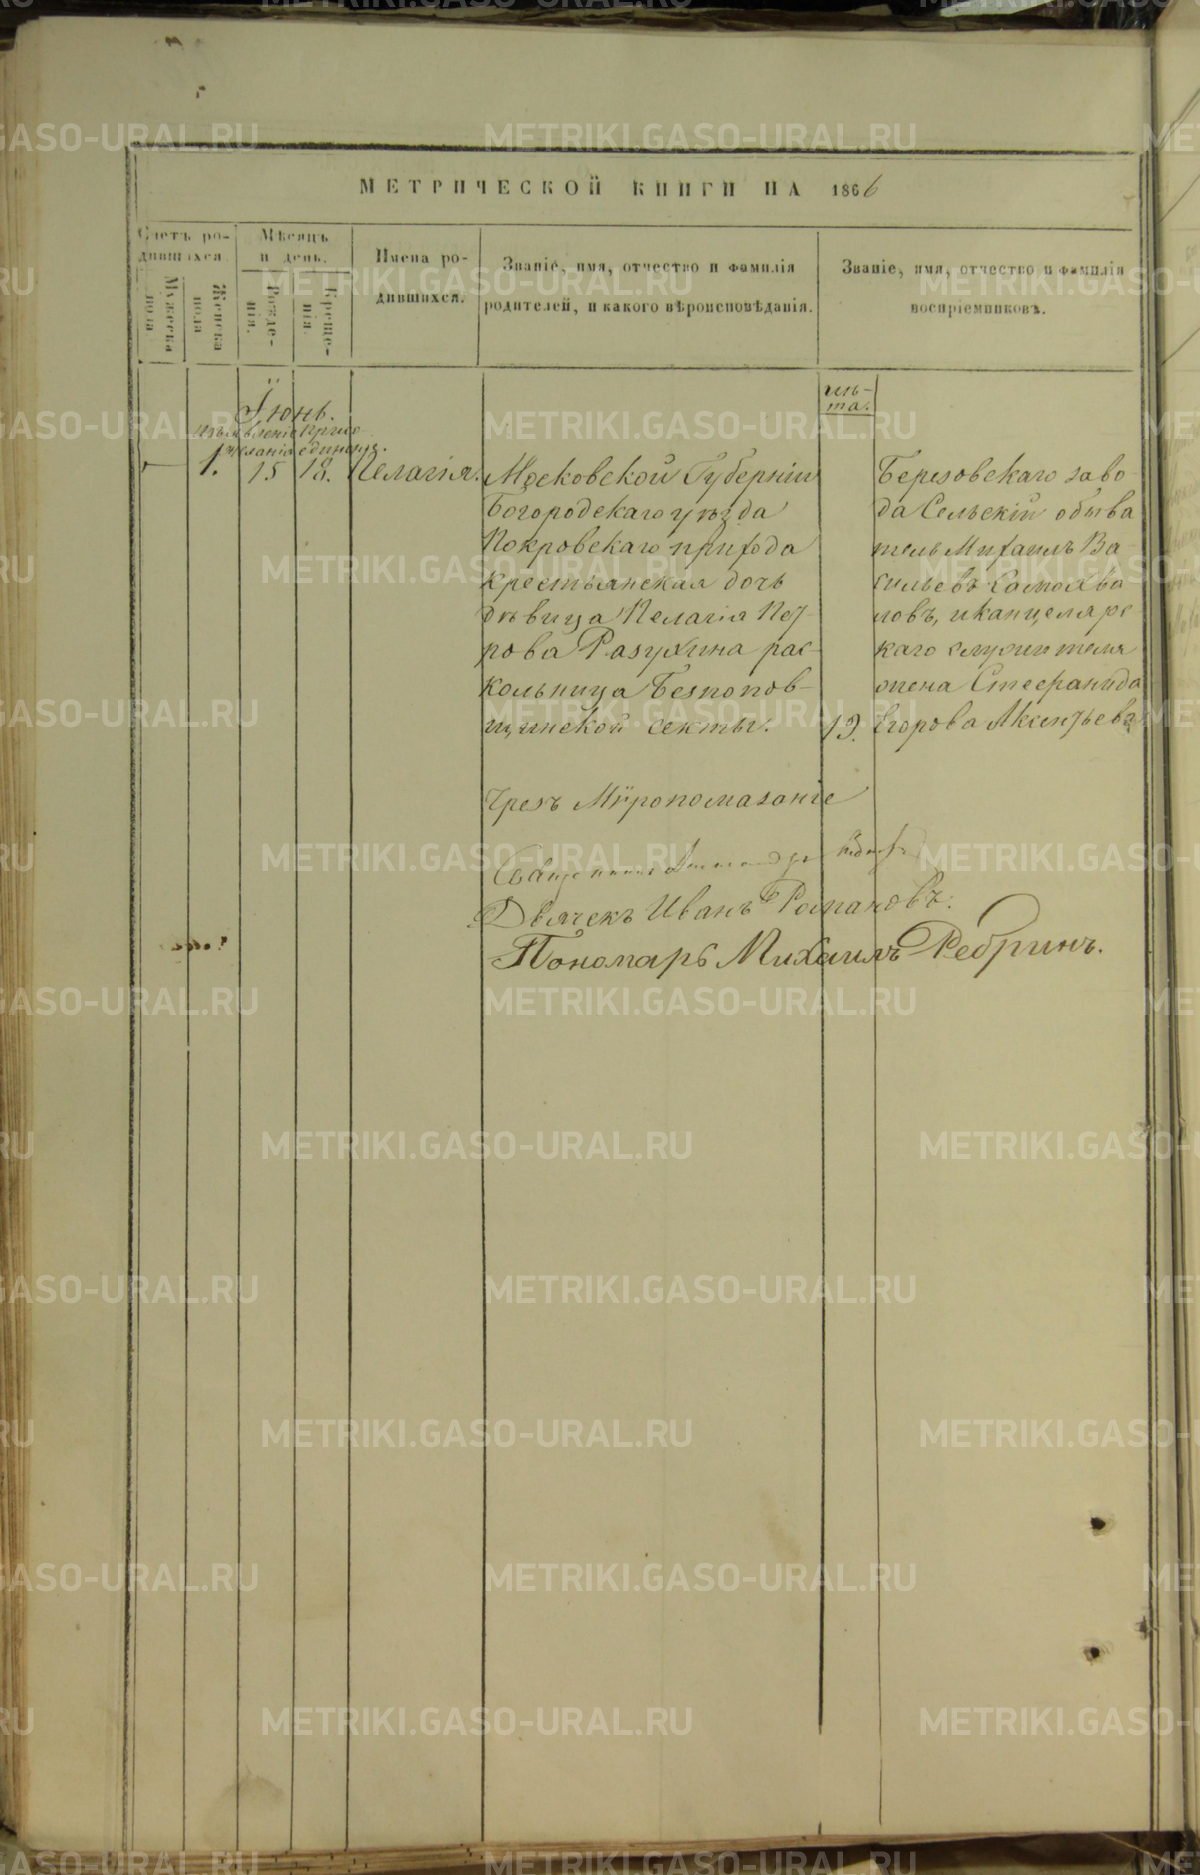 МЕТРИЧЕСКОЙ КНИГИ НА 1866
Счетъ ро-
дившихся.
Мужеска
пола.
Женска
пола
Мѣсяцъ
и день.
Рожде-
нія.
Креще-
нія.
Имена ро-
дившихся.
Званіе, имя, отчество и фамилія
родителей, и какого вѣроисповѣданія.
Званіе, имя, отчество и фамилія
воспріемниковъ.
лѣ-
та.
Іюнь.
изъявленіе
желанія
присо
единенія.
1. 15 18. Пелагія.
Московской Губерніи
Богородскаго уѣзда
Покровскаго прихода
крестьянская дочь
дѣвица Пелагія Пет-
рова Разухина рас-
кольница Безпопов-
щинской секты.
19.
Березовскаго заво-
да Сельскій обыва
тель Михаилъ Ва-
сильевъ Самохва
ловъ, и канцелярс
каго служителя
жена Стефанида
Егорова Аксентьева
Чрезъ Мѵропомазаніе
Священникъ
Дьячекъ Иванъ Романовъ.
Пономарь Михаилъ Ребринъ.
METRIKI.GASO-URAL.RU